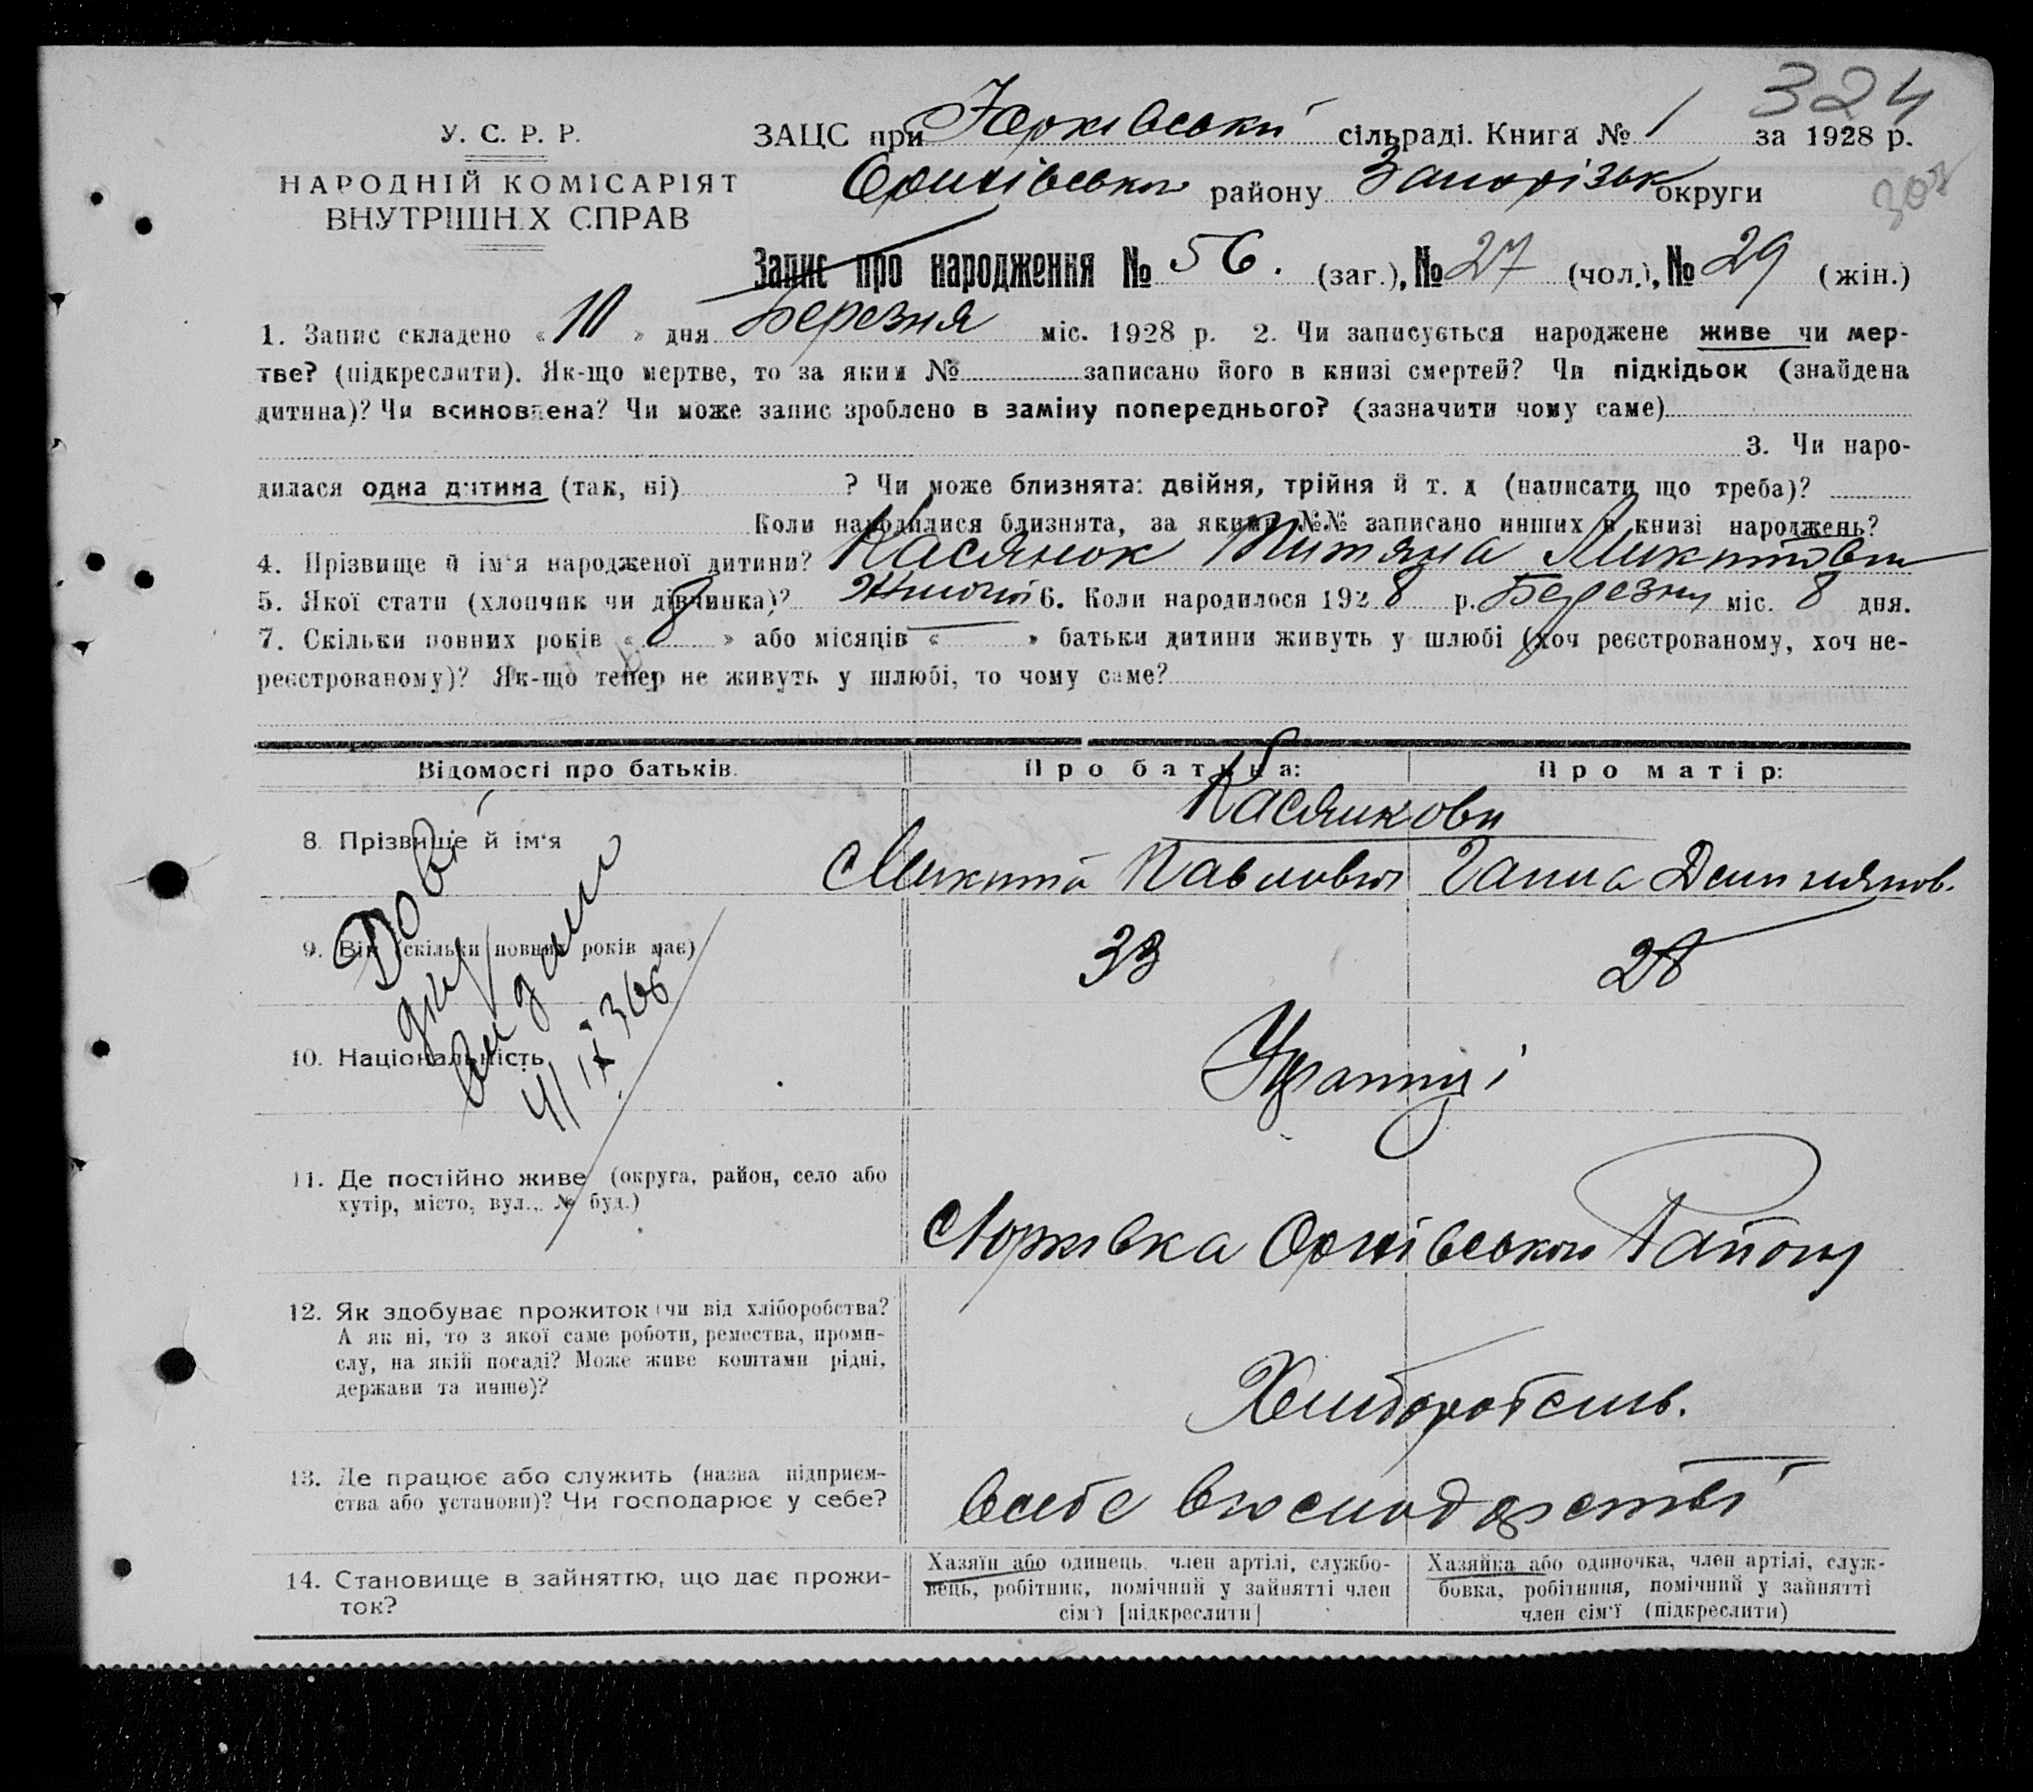 324
У. С. Р. Р.
НАРОДНІЙ КОМІСАРІЯТ
ВНУТРІШНІХ СПРАВ
ЗАЦС при Юрківській сільраді. Книга № 1 за 1928 р.
Оріхівського району Запорізьк округи
307
Запис про народження № 56. (заг.), № 27 (чол.), № 29 (жін.)
1. Запис складено « 10 » дня Березня міс. 1928 р. 2. Чи записується народжене живе чи мер-
тве? (підкреслити). Як-що мертве, то за яким № записано його в книзі смертей? Чи підкідьок (знайдена
дитина)? Чи всиновлена? Чи може запис зроблено в заміну попереднього? (зазначити чому саме)
3. Чи наро-
дилася одна дитина (так, ні) ? Чи може близнята: двійня, трійня й т. д (написати що треба)?
Коли народилися близнята, за якими №№ записано инших в книзі народжень?
4. Прізвище й ім'я народженої дитини? Касянюк Титяна Микитовна
5. Якої стати (хлопчик чи дівчинка)? Жиночої 6. Коли народилося 1928 р. Березня міс. 8 дня.
7. Скільки повних років « 8 » або місяців « — » батьки дитини живуть у шлюбі (хоч реєстрованому, хоч не-
реєстрованому)? Як-що тепер не живуть у шлюбі, то чому саме?
Відомості про батьків.
Про батька:
Про матір:
8. Прізвище й ім'я
Касянкови
Микита Павлович
Ганна Демянов.
9. Вік (скільки повних років має)
33
28
10. Національність
Українці
Дові
дку
видано
4/IX 36
11. Де постійно живе (округа, район, село або
хутір, місто, вул., № буд.)
Юрківка Оріхівського Району
12. Як здобуває прожиток (чи від хліборобства?
А як ні, то з якої саме роботи, ремества, проми-
слу, на якій посаді? Може живе коштами рідні,
держави та инше)?
Хлиборобств.
13. Де працює або служить (назва підприєм-
ства або установи)? Чи господарює у себе?
всебе в господарстві
14. Становище в зайняттю, що дає прожи-
ток?
Хазяїн або одинець, член артілі, службо-
вець, робітник, помічний у зайнятті член
сім'ї [підкреслити]
Хазяйка або одиночка, член артілі, служ-
бовка, робітниця, помічний у зайнятті
член сім'ї (підкреслити)